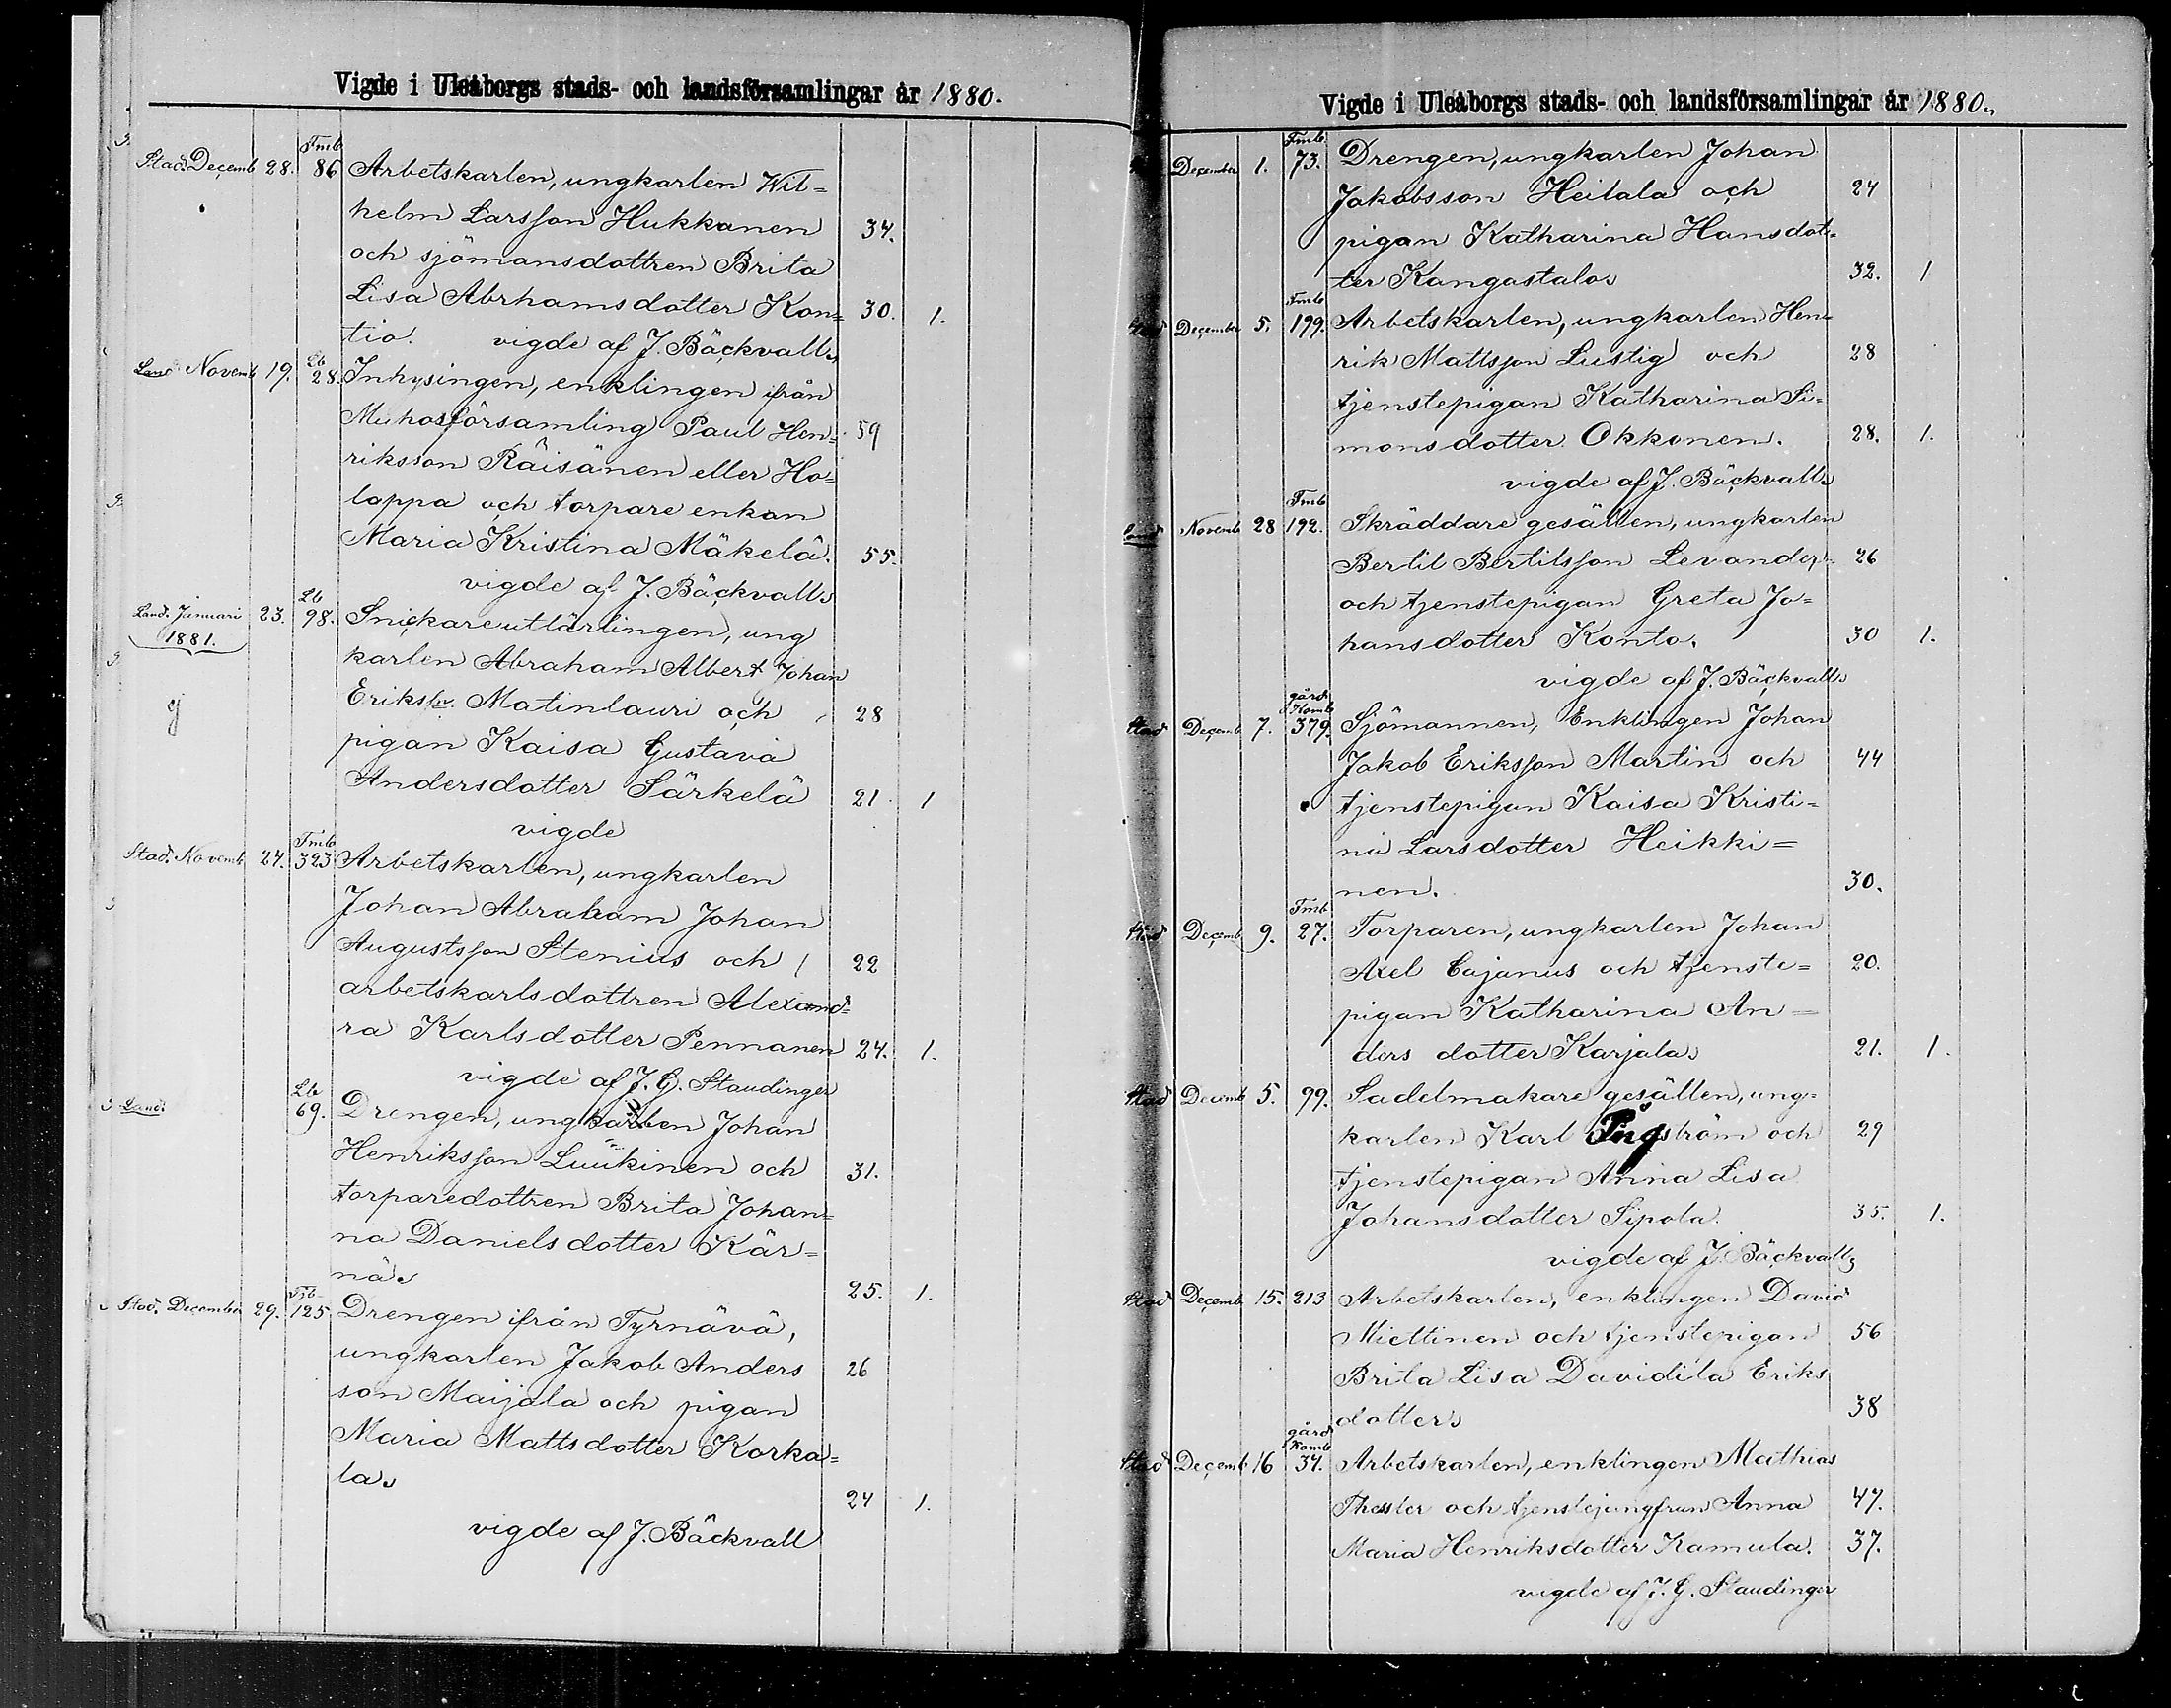 Vigde i Uleåborgs stads- och landsförsamlingar år 1880.
Fmb
Stad. Decemb 28. 86 Arbetskarlen, ungkarlen Wil=
helm Larsson Hukkanen 34.
och sjömansdottren Brita
Lisa Abrhamsdotter Kon= 30. 1.
tio. vigde af J. Bäckvall
Lb
Land Novemb 19. 28. Inhysingen, enklingen ifrån
Muhos församling Paul Hen= 59
riksson Räisänen eller Ho=
lappa och torpare enkan
Maria Kristina Mäkelä. 55.
vigde af J. Bäckvall
Lb
Land. Januari 23. 98. Snickareutlärlingen, ung
1881.
karlen Abraham Albert Johan
Eriksson Matinlauri och 28
pigan Kaisa Gustava
Andersdotter Särkelä 21. 1
vigde
Fmb
Stad. Novemb 24. 323 Arbetskarlen, ungkarlen
Johan Abraham Johan
Augustsson Stenius och 22
arbetskarlsdottren Alexand=
ra Karlsdotter Pennanen 24. 1.
vigde af J. G. Staudinger
Lb
Land. 69. Drengen, ungkarlen Johan
Henriksson Luukinen och 31.
torparedottren Brita Johan=
na Danielsdotter Kär=
nä 25. 1.
Stad. December 29. 125 Drengen ifrån Tyrnävä,
ungkarlen Jakob Anders 26
son Maijala och pigan
Maria Mattsdotter Korka=
la 24 1.
vigde af J. Bäckvall
Vigde i Uleåborgs stads- och landsförsamlingar år 1880.
Fmb
December 1. 73. Drengen, ungkarlen Johan
Jakobsson Heitala och 24
pigan Katharina Hansdot=
ter Kangastalo 32. 1
Fmb
Stad December 5. 199. Arbetskarlen, ungkarlen Hen=
rik Mattsson Lustig och 28
tjenstepigan Katharina Si=
monsdotter Okkonen. 28. 1.
vigde af J. Bäckvall
Fmb
Land Novemb 28 192. Skräddare gesällen, ungkarlen
Bertil Bertilsson Levander 26
och tjenstepigan Greta Jo=
hansdotter Konto. 30 1.
vigde af J. Bäckvall
gård
Komb
Stad Decemb 7. 379. Sjömannen, Enklingen Johan
Jakob Eriksson Martin och 44
tjenstepigan Kaisa Kristi=
na Larsdotter Heikki=
nen. 30.
Fmb
Stad Decemb 9. 27. Torparen, ungkarlen Johan
Axel Cajanus och tjenste= 20.
pigan Katharina An=
ders dotter Karjala 21. 1.
Stad Decemb 5. 99. Sadelmakare gesällen, ung=
karlen Karl Tingström och 29
tjenstepigan Anna Lisa
Johansdotter Sipola. 35. 1.
vigde af J. Bäckvall
Stad Decemb 15. 213 Arbetskarlen, enklingen David
Miettinen och tjenstepigan 56
Brita Lisa Davidila Eriks
dotter 38
gård
Komb
Stad Decemb 16 34. Arbetskarlen, enklingen Mathias
Thessler och tjenstejungfrun Anna 47.
Maria Henriksdotter Kamula. 37.
vigde af J. G. Staudinger